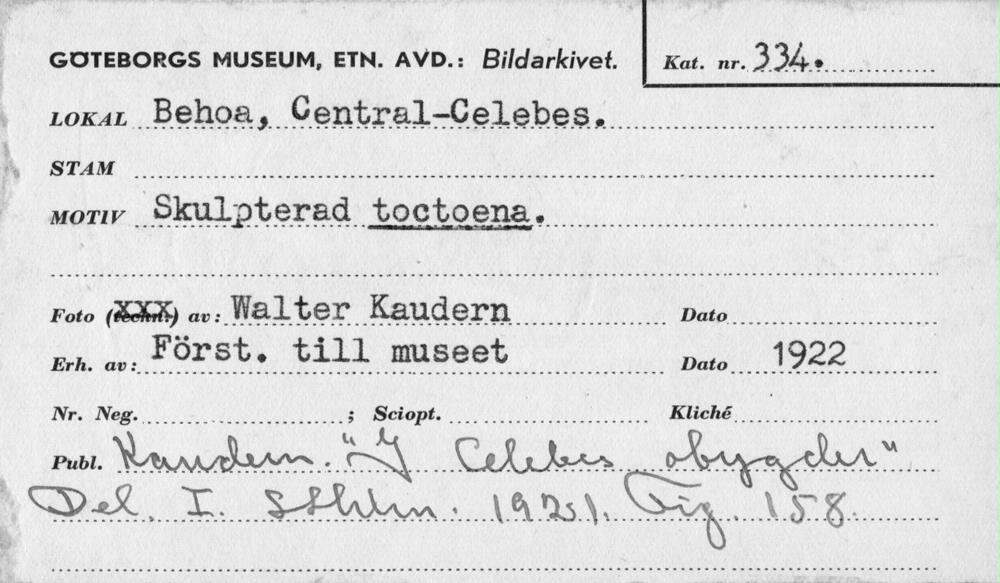 GÖTEBORGS MUSEUM, ETN. AVD.: Bildarkivet.
Kat. nr. 334.
LOKAL Behoa, Central-Celebes.
STAM
MOTIV Skulpterad toctoena.
Foto (techn.) av: Walter Kaudern Dato
Erh. av: Först. till museet Dato 1922
Nr. Neg. ; Sciopt. Kliché
Publ. Kaudern. "I Celebes obygder"
Del. I. Sthlm. 1921. Fig. 158.